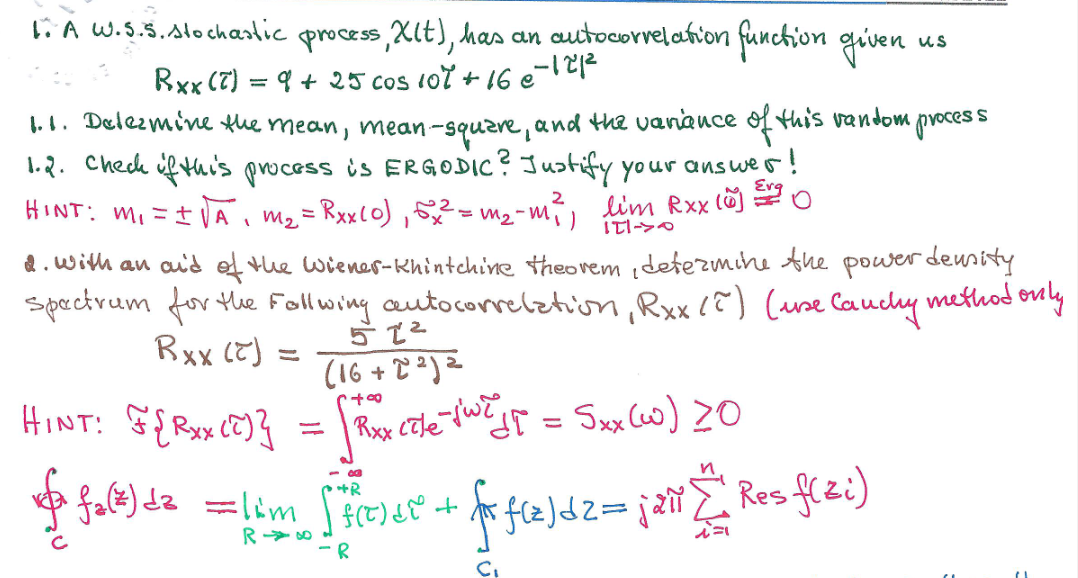 1. A W.S.S. stochastic process, X(t), has an autocorrelation function given us
Rxx(τ) = 9 + 25 cos 10τ + 16 e^{-|τ|²}
1.1. Determine the mean, mean-square, and the variance of this random process
1.2. Check if this process is ERGODIC? Justify your answer!
HINT: m₁ = ±√A, m₂ = Rxx(0), σx² = m₂ - m₁², lim_{|τ|→∞} Rxx(τ) =^{Erg} 0
2. With an aid of the Wiener-Khintchine theorem, determine the power density
spectrum for the Follwing autocorrelation, Rxx(τ) (use Cauchy method only
Rxx(τ) = 5τ² / (16 + τ²)²
HINT: F{Rxx(τ)} = ∫_{-∞}^{+∞} Rxx(τ)e^{-jωτ}dτ = Sxx(ω) ≥ 0
∮_C f₂(z)dz = lim_{R→∞} ∫_{-R}^{+R} f(τ)dτ + ∮_{C₁} f(z)dz = j2π Σ_{i=1}^{n} Res f(zi)